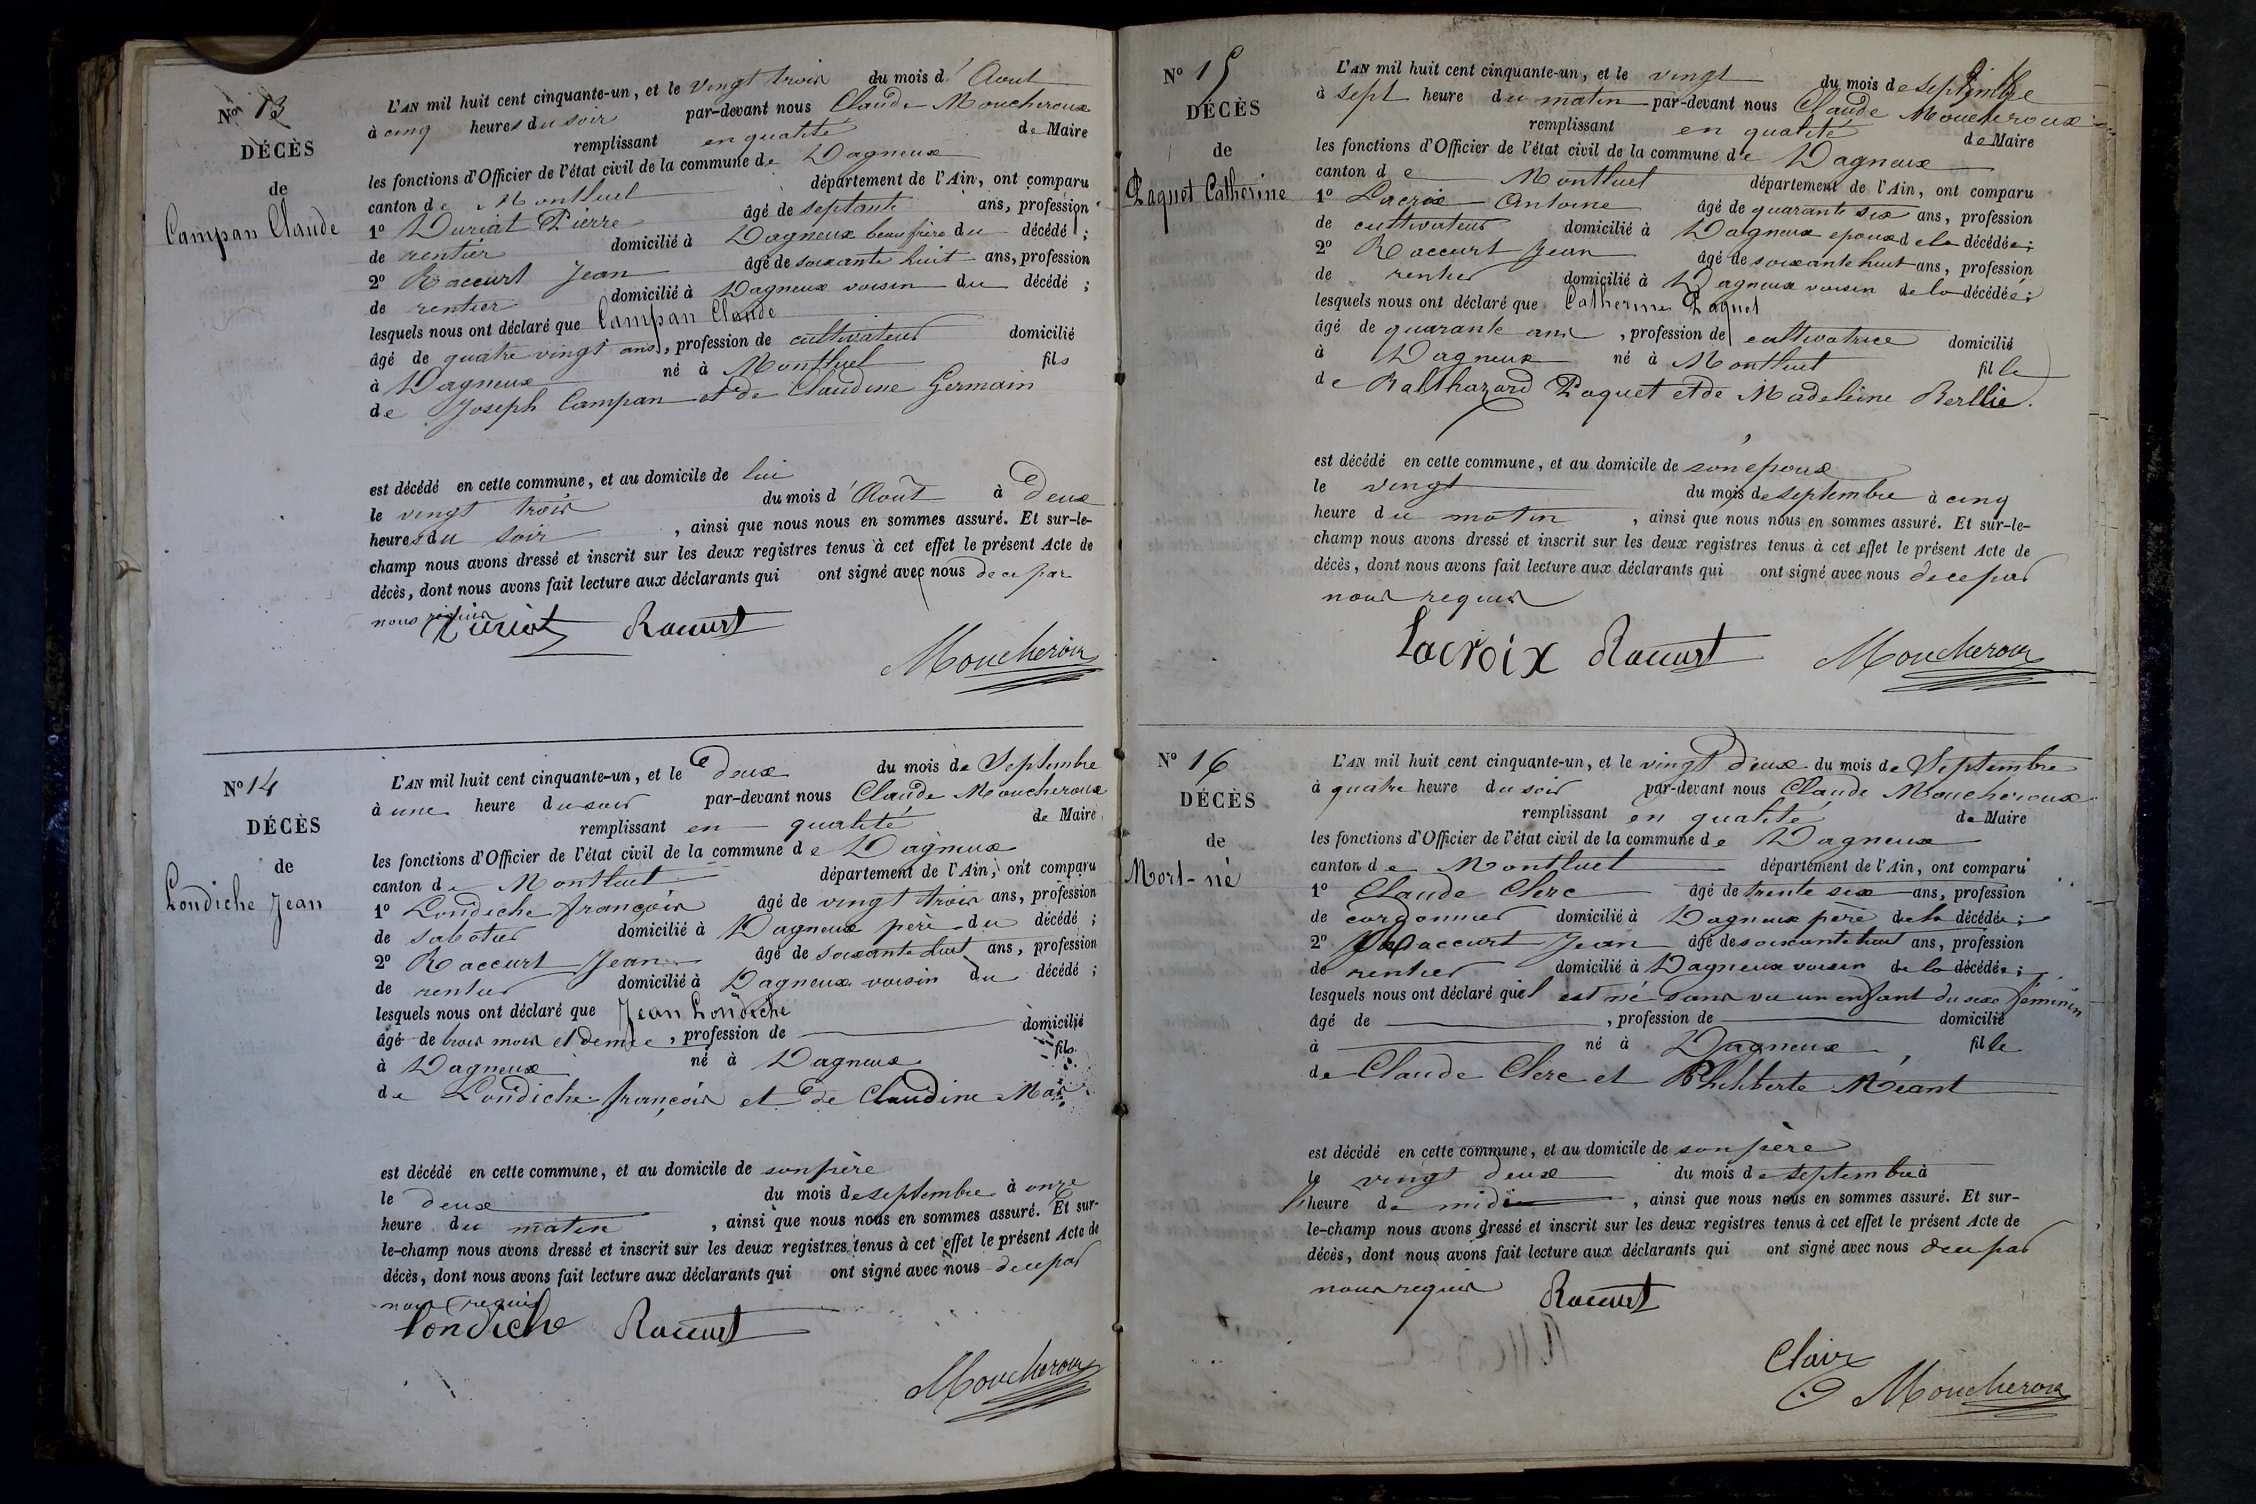 No 13
DÉCÈS
de
Campan Claude
L'AN mil huit cent cinquante-un, et le vingt trois du mois d'Aout
à cinq heures du soir par-devant nous Claude Moucheroux
remplissant en qualité de Maire
les fonctions d'Officier de l'état civil de la commune de Dagneux
canton de Montluel département de l'Ain, ont comparu
1o Duriat Pierre âgé de septante ans, profession
de rentier domicilié à Dagneux beau frère du décédé ;
2o Raccurt Jean âgé de soixante huit ans, profession
de rentier domicilié à Dagneux voisin du décédé ;
lesquels nous ont déclaré que Campan Claude
âgé de quatre vingt ans, profession de cultivateur domicilié
à Dagneux né à Montluel fils
de Joseph Campan et de Claudine Germain
est décédé en cette commune, et au domicile de lui
le vingt trois du mois d'Août à Deux
heures du soir , ainsi que nous nous en sommes assuré. Et sur-le-
champ nous avons dressé et inscrit sur les deux registres tenus à cet effet le présent Acte de
décès, dont nous avons fait lecture aux déclarants qui ont signé avec nous de ce par
nous requis
Duriat Raccurt
Moucheroux
No 14
DÉCÈS
de
Londiche Jean
L'AN mil huit cent cinquante-un, et le deux du mois de Septembre
à une heure du soir par-devant nous Claude Moucheroux
remplissant en qualité de Maire
les fonctions d'Officier de l'état civil de la commune de Dagneux
canton de Montluel département de l'Ain, ont comparu
1o Londiche françois âgé de vingt trois ans, profession
de sabotier domicilié à Dagneux père du décédé ;
2o Raccurt Jean âgé de soixante huit ans, profession
de rentier domicilié à Dagneux voisin du décédé ;
lesquels nous ont déclaré que Jean Londiche
âgé de trois mois et demie, profession de domicilié
à Dagneux né à Dagneux fils
de Londiche françois et de Claudine
est décédé en cette commune, et au domicile de son père
le deux du mois de septembre à onze
heure du matin , ainsi que nous nous en sommes assuré. Et sur-
le-champ nous avons dressé et inscrit sur les deux registres tenus à cet effet le présent Acte de
décès, dont nous avons fait lecture aux déclarants qui ont signé avec nous de ce par
nous requis
Londiche Raccurt
Moucheroux
No 15
DÉCÈS
de
Paquet Catherine
L'AN mil huit cent cinquante-un, et le vingt du mois de septembre
à sept heure du matin par-devant nous Claude Moucheroux
remplissant en qualité de Maire
les fonctions d'Officier de l'état civil de la commune de Dagneux
canton de Montluel département de l'Ain, ont comparu
1o Lacroix Antoine âgé de quarante six ans, profession
de cultivateur domicilié à Dagneux epoux de la décédée ;
2o Raccurt Jean âgé de soixante huit ans, profession
de rentier domicilié à Dagneux voisin de la décédée ;
lesquels nous ont déclaré que Catherine Paquet
âgé de quarante ans , profession de cultivatrice domicilié
à Dagneux né à Montluel fille
de Balthazard Paquet et de Madeleine Berllie.
est décédé en cette commune, et au domicile de son époux
le vingt du mois de septembre à cinq
heure du matin , ainsi que nous nous en sommes assuré. Et sur-le-
champ nous avons dressé et inscrit sur les deux registres tenus à cet effet le présent Acte de
décès, dont nous avons fait lecture aux déclarants qui ont signé avec nous de ce par
nous requis
Lacroix Raccurt Moucheroux
No 16
DÉCÈS
de
Mort-né
L'AN mil huit cent cinquante-un, et le vingt deux du mois de Septembre
à quatre heure du soir par-devant nous Claude Moucheroux
remplissant en qualité de Maire
les fonctions d'Officier de l'état civil de la commune de Dagneux
canton de Montluel département de l'Ain, ont comparu
1o Claude Clerc âgé de trente six ans, profession
de cordonnier domicilié à Dagneux père de la décédée ;
2o Raccurt Jean âgé de soixante huit ans, profession
de rentier domicilié à Dagneux voisin de la décédée ;
lesquels nous ont déclaré qu'il est né sans vie un enfant du sexe féminin
âgé de , profession de domicilié
à né à Dagneux , fille
de Claude Clerc et Philiberte Méant
est décédé en cette commune, et au domicile de son père
le vingt deux du mois de septembre à
heure de midi , ainsi que nous nous en sommes assuré. Et sur-
le-champ nous avons dressé et inscrit sur les deux registres tenus à cet effet le présent Acte de
décès, dont nous avons fait lecture aux déclarants qui ont signé avec nous de ce par
nous requis Raccurt
Clairc
Moucheroux